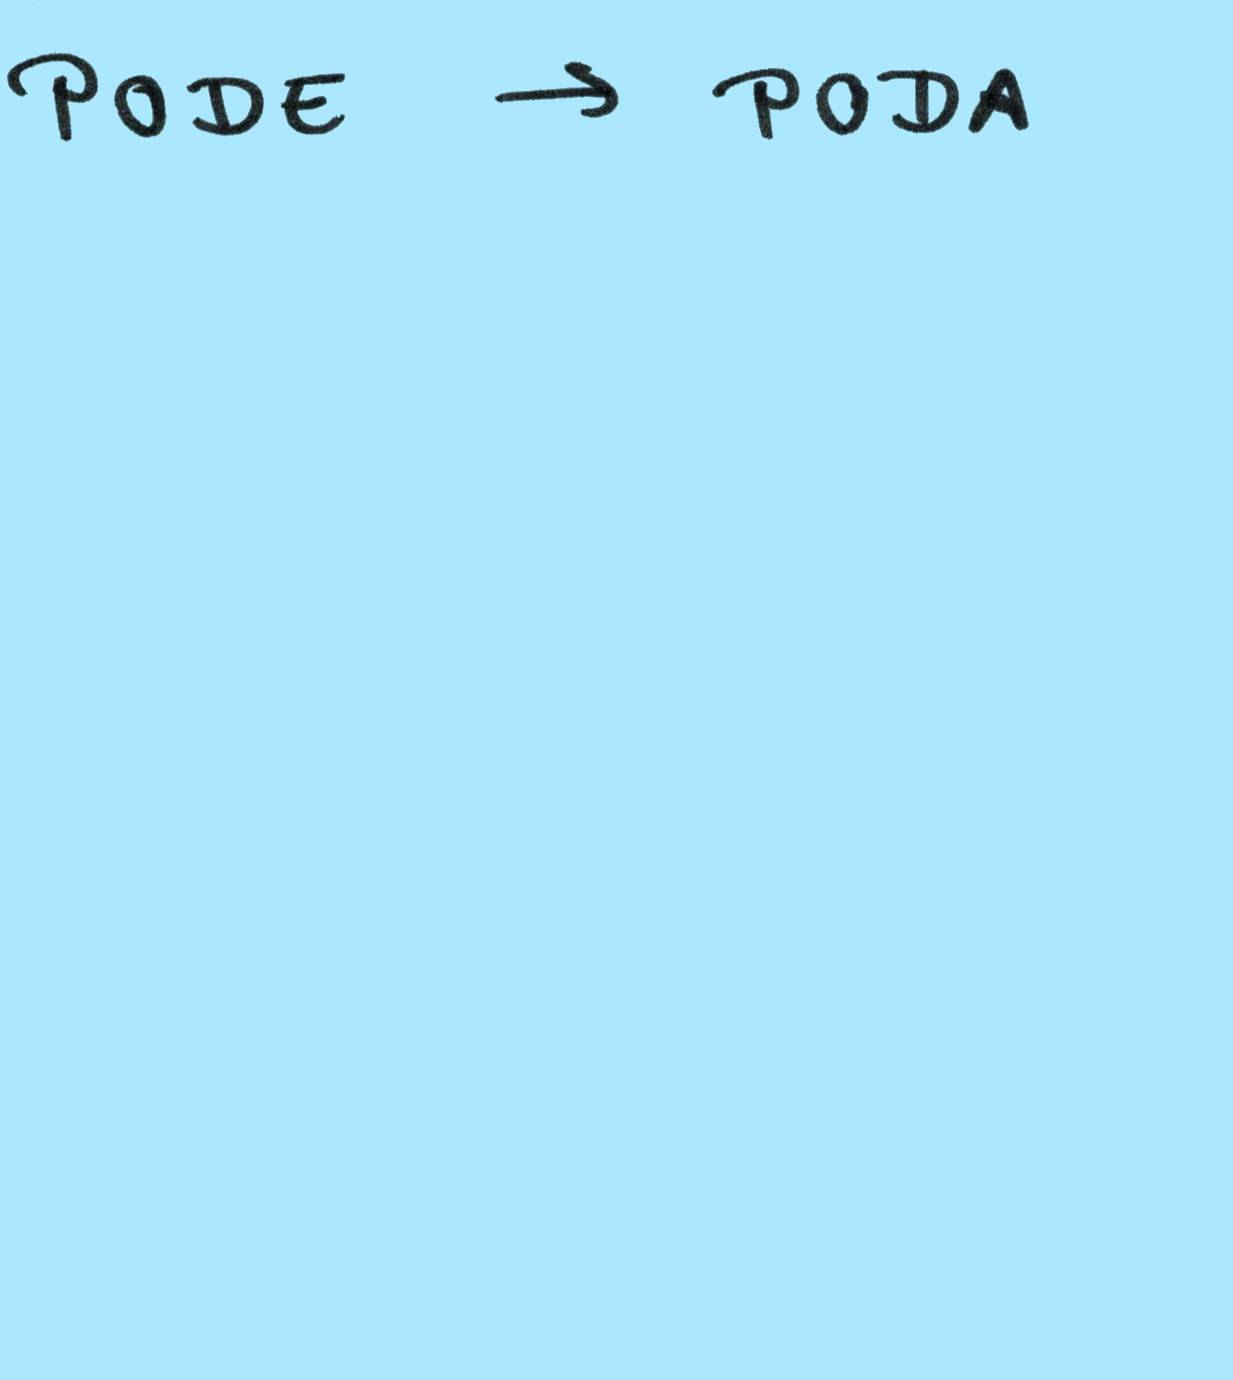 PODE → PODA